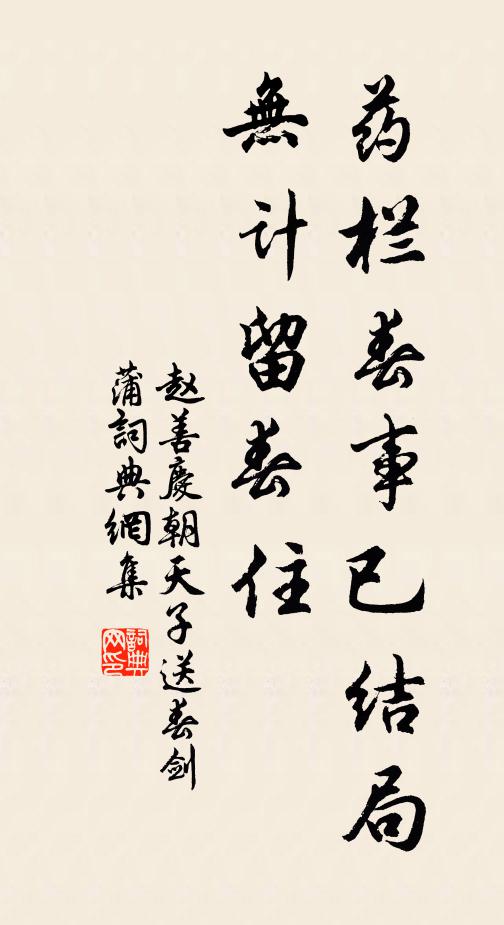 药栏春事已结局
無计留春住
赵善慶朝天子送春剑
蒲詞典網集
詞典
网印